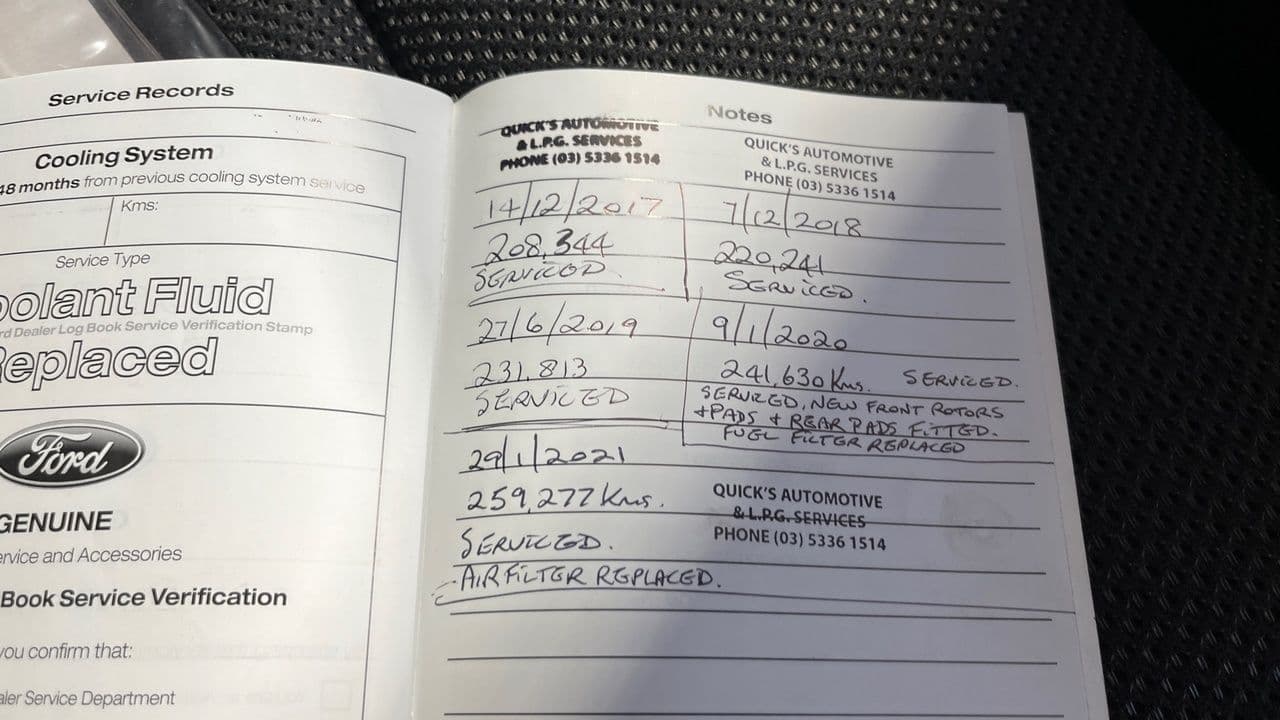 Service Records
Cooling System
48 months from previous cooling system service
Kms:
Service Type
oolant Fluid
rd Dealer Log Book Service Verification Stamp
Replaced
Ford
GENUINE
ervice and Accessories
Book Service Verification
you confirm that:
aler Service Department
Notes
QUICK'S AUTOMOTIVE
& L.P.G. SERVICES
PHONE (03) 5336 1514
14/12/2017
208,344
SERVICED.
QUICK'S AUTOMOTIVE
& L.P.G. SERVICES
PHONE (03) 5336 1514
7/12/2018
220,241
SERVICED.
27/6/2019
231,813
SERVICED
9/1/2020
241,630 Kms. SERVICED.
SERVICED, NEW FRONT ROTORS
+ PADS + REAR PADS FITTED.
FUEL FILTER REPLACED
29/1/2021
259,277 Kms.
SERVICED.
- AIR FILTER REPLACED.
QUICK'S AUTOMOTIVE
& L.P.G. SERVICES
PHONE (03) 5336 1514